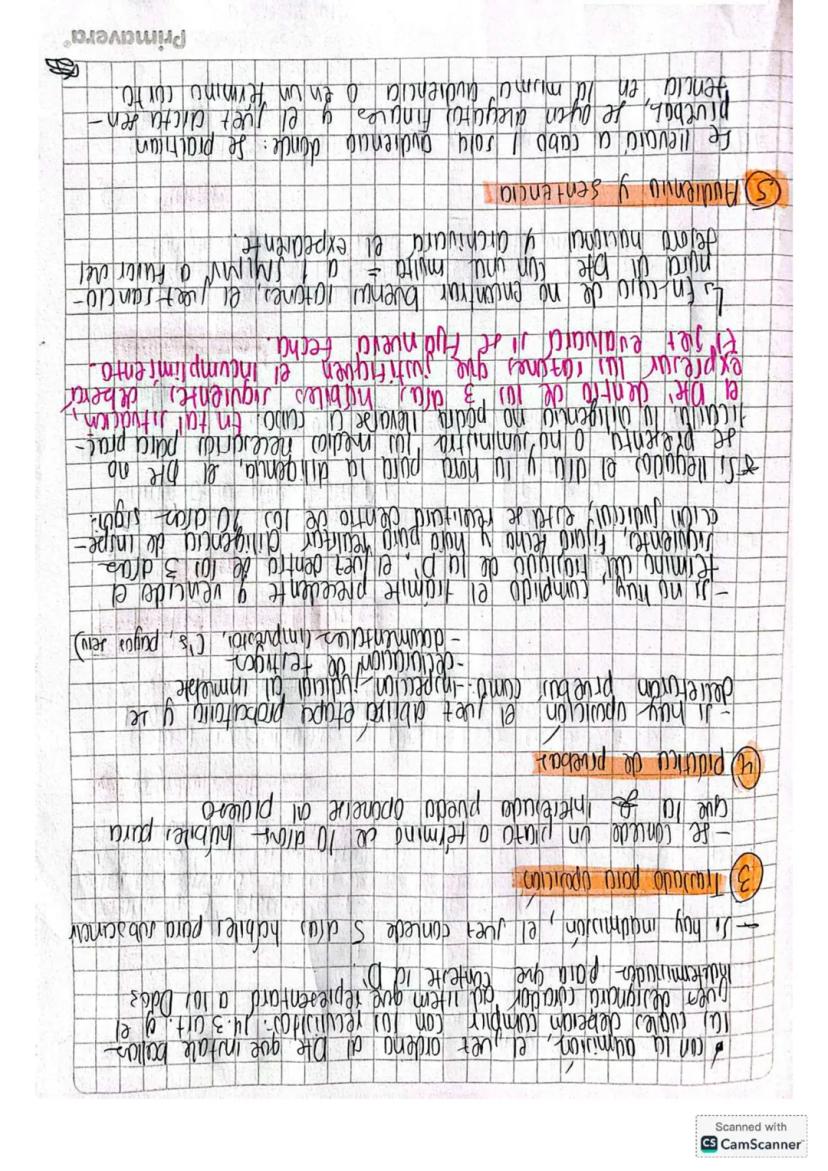 • con la admisión, el juez ordena al Dte que instale vallas
las cuales deberán cumplir con los requisitos. - l4. 3 art. 9 el
juez designará curador ad litem que representará a los Ddos
indeterminados para que conteste la D'.
- Si hay inadmisión, el juez concede 5 días hábiles para subsanar
3 Traslado para oposición
- se concede un plazo o término de 10 días hábiles para
que la interesado pueda oponerse al proceso
4 práctica de pruebas
- si hay oposición el juez abrirá etapa probatoria y se
decretarán pruebas como: -inspección judicial al inmueble
-declaración de testigos
-documentales (impuestos, C's, pagos serv)
- si no hay, cumplido el trámite precedente y vencido el
término del traslado de la D', el juez dentro de los 3 días
siguientes, fijará fecha y hora para realizar diligencia de inspe-
cción judicial, esta se realizará dentro de los 10 días sigtes.
* Si llegados el día y la hora para la diligencia, el Dte no
se presenta o no suministra los medios necesarios para prac-
ticarla, la diligencia no podrá llevarse a cabo. En tal situación,
el Dte dentro de los 3 días hábiles siguientes, deberá
expresar las razones que justifiquen el incumplimiento.
El juez evaluará si se fija nueva fecha.
↳ En caso de no encontrar buenas razones, el juez sancio-
nará al Dte con una multa = a 1 SMLMV a favor del
tesoro nacional y archivará el expediente.
5 Audiencia y sentencia
Se llevará a cabo 1 sola audiencia donde: se practican
pruebas, se oyen alegatos finales y el juez dicta sen-
tencia en la misma audiencia o en un término corto.
Primavera®
Scanned with
CS CamScanner